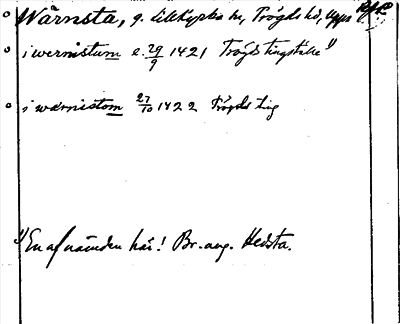 Wärnsta, g. Lillkyrka sn, Trögds hd, Upps.
i wernistum e. 29/9 1421 Trögds tingställe 1)
i wärnistom 27/10 1422 Trögds ting
1) En af nämnden här! Br. ang. Hedsta.